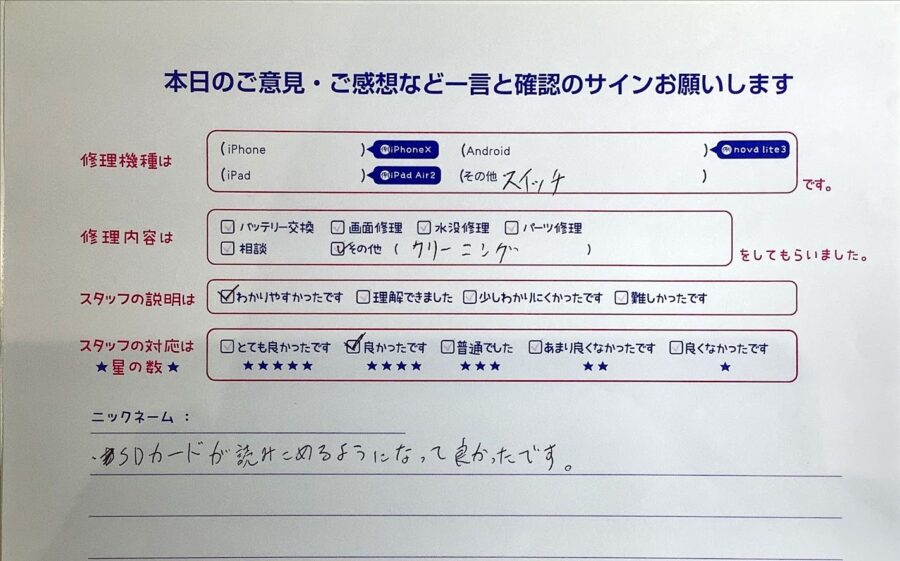 本日のご意見・ご感想など一言と確認のサインお願いします
修理機種は (iPhone )例iPhoneX (Android )例nova lite3
(iPad )例iPad Air2 (その他 スイッチ ) です。
修理内容は バッテリー交換 画面修理 水没修理 パーツ修理
相談 その他 ( クリーニング ) をしてもらいました。
スタッフの説明は わかりやすかったです 理解できました 少しわかりにくかったです 難しかったです
スタッフの対応は とても良かったです 良かったです 普通でした あまり良くなかったです 良くなかったです
★星の数★ ★★★★★ ★★★★ ★★★ ★★ ★
ニックネーム：
SDカードが読みこめるようになって良かったです。